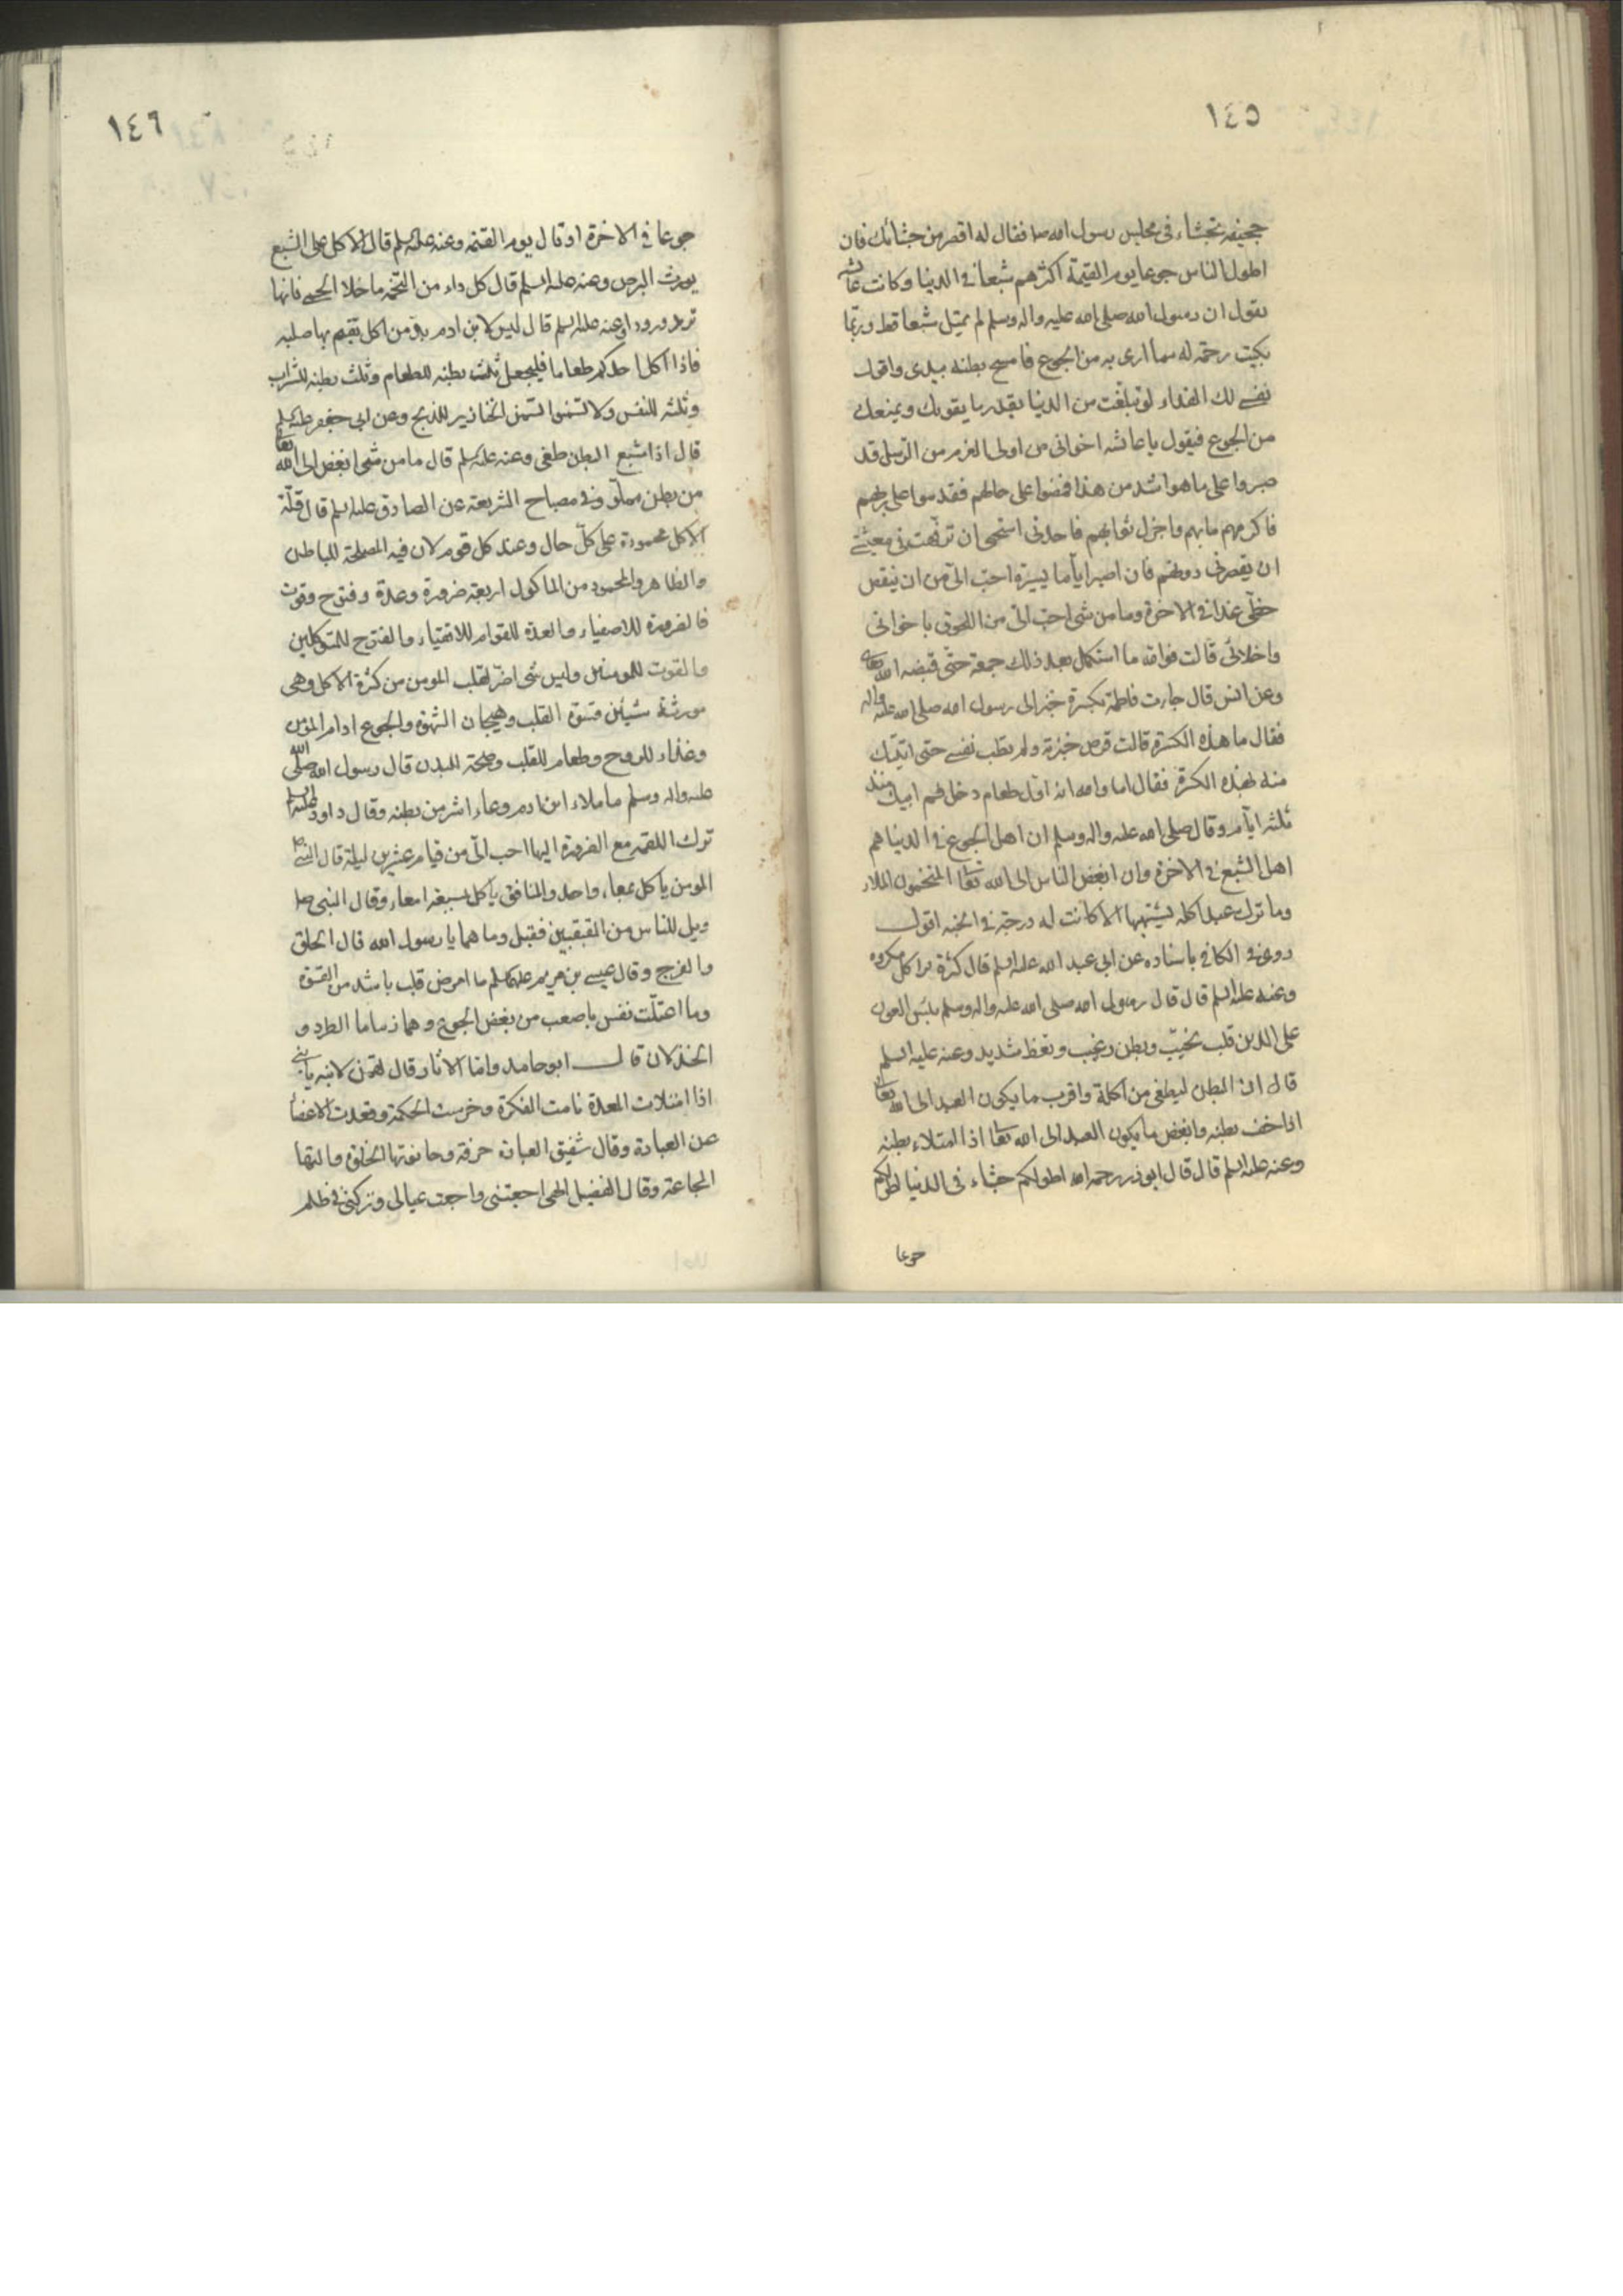 ١٤٥
جحيفه تجشاء فى مجلس رسول الله صا فقال له اقصر من جشائك فان
اطول الناس جوعا يوم القيمة اكثرهم شبعا فى الدنيا وكانت عائشه
يقول ان رسول الله صلى الله عليه واله وسلم لم يمتل شبعا قط وربّما
بكيت رحمة له مما ارى به من الجوع فامسح بطنه بيدى واقول
نفسى لك الفداء لو تبلّغت من الدنيا بقدر ما يقوتك ويمنعك
من الجوع فيقول يا عائشه اخوانى من اولى العزم من الرّسل قد
صبروا على ما هو اشد من هذا فمضوا على حالهم فقدموا على ربهم
فاكرمهم مابهم واجزل ثوابهم فاجدنى استحيى ان ترفّهت فى معيشتى
ان يقصر بى دونهم فان اصبر ايّاما يسيرة احبّ الىّ من ان ينقص
حظّى غدا فى الاخرة وما من شى احبّ الىّ من اللحوق باخوانى
واخلائى قالت فوالله ما استكمل بعد ذلك جمعة حتّى قبضه الله تعالى
وعن انس قال جاءت فاطمة بكسرة خبز الى رسول الله صلى الله عليه واله
فقال ما هذه الكسرة قالت قرص خبزته ولم يطب نفسى حتى اتيتك
منه بهذه الكسرة فقال اما والله انه اوّل طعام دخل فم ابيك منذ
ثلثه ايّام وقال صلى الله عليه واله وسلم ان اهل الجوع فى الدنيا هم
اهل الشبع فى الاخرة وان ابغض الناس الى الله تعا المتخمون الملاء
وما ترك عبد اكله يشتهيها الا كانت له درجة فى الجنه اقول
روى فى الكافى باسناده عن ابى عبد الله عليه السلم قال كثرة الاكل مكروه
وعنه عليه السلم قال قال رسول الله صلى الله عليه واله وسلم بئس العون
على الدين قلب نخيّب وبطن رغيب ونعظ شديد وعنه عليه السلم
قال ان البطن ليطغى من اكلة واقرب ما يكون العبد الى الله تعالى
اذا خف بطنه وابغض ما يكون العبد الى الله تعا اذا امتلاء بطنه
وعنه عليه السلم قال قال ابوذر رحمه الله اطولكم جشاء فى الدنيا اطولكم
جوعا
١٤٦
جوعا فى الاخرة او قال يوم القيمه وعنه عليه السلم قال الاكل على الشبع
يورث البرص وعنه عليه السلم قال كل داء من التخمه ما خلا الحمى فانها
ترد ورودا وعنه عليه السلم قال ليس لابن ادم بدّ من اكل يقيم بها صلبه
فاذا اكل احدكم طعاما فليجعل ثلث بطنه للطعام وثلث بطنه للشراب
وثلثه للنفس ولا تسمنوا تسمن الخنازير للذبح وعن ابى جعفر عليه السلم
قال اذا شبع البطن طغى وعنه عليه السلم قال ما من شى ابغض الى الله تعالى
من بطن مملوّ وفى مصباح الشريعة عن الصادق عليه السلم قال قلّة
الاكل محمودة على كلّ حال وعند كل قوم لان فيه المصلحة للباطن
والظاهر والمحمود من الماكول اربعة ضرورة وعدّة وفتوح وقوت
فالضرورة للاصفياء والعدّة للقوام للاتقياء والفتوح للمتوكلين
والقوت للمومنين وليس شى اضرّ لقلب المومن من كثرة الاكل وهى
مورثة شيئين قسوة القلب وهيجان الشهوة والجوع ادام المؤمن
وغذاء للروح وطعام للقلب وصحّة للبدن قال رسول الله صلّى الله
عليه واله وسلم ما ملاء ابن ادم وعاء اشر من بطنه وقال داود عليه السلم
ترك اللقمه مع الضرورة اليها احب الىّ من قيام عشرين ليلة قال النبى صا
المومن ياكل بمعاء واحد والمنافق ياكل بسبعة امعاء وقال النبى صا
ويل للناس من القبقبين فقيل وما هما يا رسول الله قال الحلق
والفرج وقال عيسى بن مريم عليهما السلم ما امرض قلب باشد من القسوة
وما اعتلّت نفس باصعب من بغض الجوع وهما زماما الطرد و
الخذلان قال ابو حامد وامّا الاثار قال لقمن لابنه يا بنى
اذا امتلات المعدة نامت الفكرة وخرست الحكمة وقعدت الاعضأ
عن العبادة وقال شفيق العبادة حرفة وحانوتها الخلوة والتها
المجاعة وقال الفضيل الهى اجعتنى واجعت عيالى وتركتنى فى ظلم